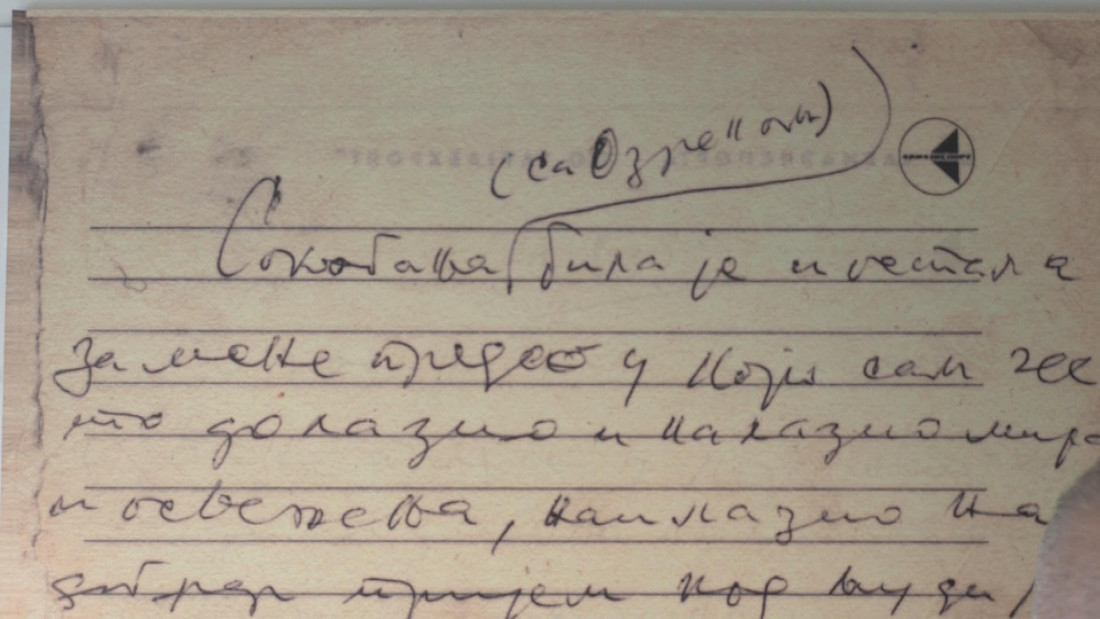 (са Озреном)
Сокобања била је и остала
за мене предео у који сам чес
то долазио и налазио мира
и освежења, наилазио на
добар пријем код људи,